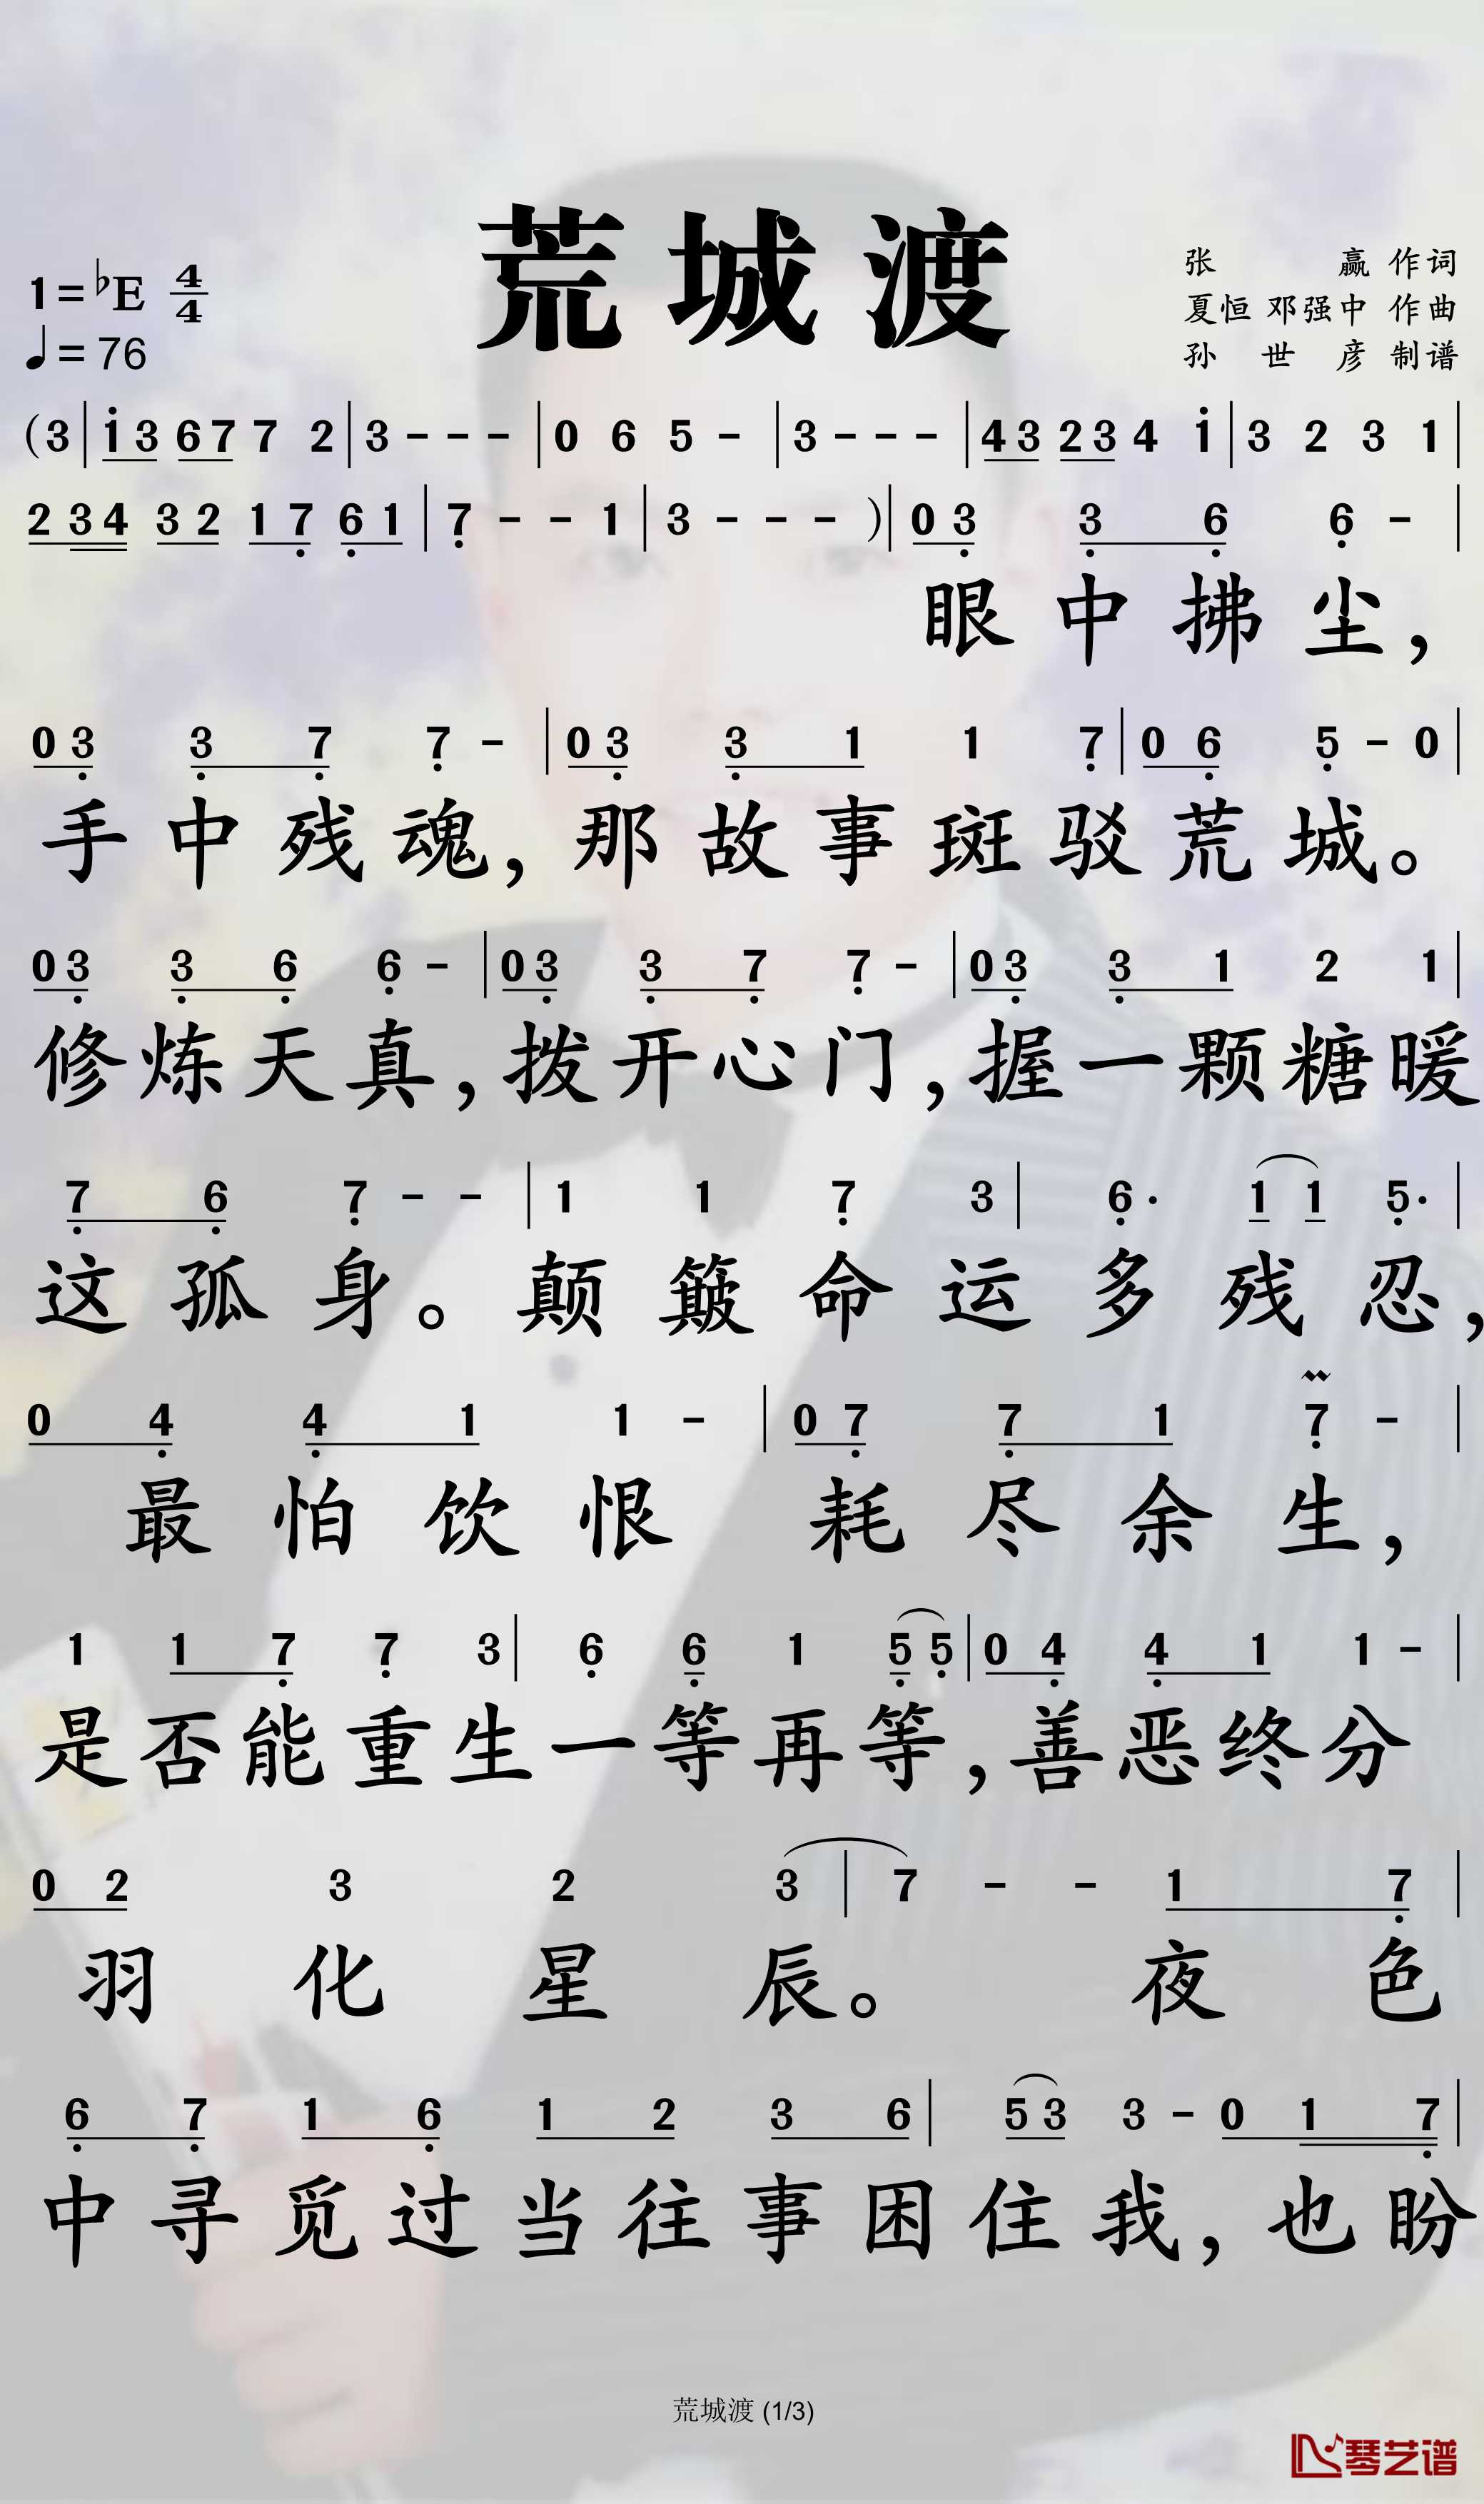 荒城渡
1=♭E 4/4
♩=76
张 赢 作词
夏恒 邓强中 作曲
孙 世 彦 制谱
(3|i 3 6 7 7 2|3 - - -|0 6 5 -|3 - - -|4 3 2 3 4 i|3 2 3 1|
2 3 4 3 2 1 7̣ 6̣ 1|7̣ - - 1|3 - - -)|0 3̣ 3̣ 6̣ 6̣ -|
眼中拂尘，
0 3̣ 3̣ 7̣ 7̣ -|0 3̣ 3̣ 1 1 7̣|0 6̣ 5̣ - 0|
手中残魂，那故事斑驳荒城。
0 3̣ 3̣ 6̣ 6̣ -|0 3̣ 3̣ 7̣ 7̣ -|0 3̣ 3̣ 1 2 1|
修炼天真，拨开心门，握一颗糖暖
7̣ 6̣ 7̣ - -|1 1 7̣ 3|6̣· 1 1 5̣·|
这孤身。颠簸命运多残忍，
0 4̣ 4̣ 1 1 -|0 7̣ 7̣ 1 7̣ -|
最怕饮恨耗尽余生，
1 1 7̣ 7̣ 3|6̣ 6̣ 1 5̣ 5̣|0 4̣ 4̣ 1 1 -|
是否能重生一等再等，善恶终分
0 2 3 2 3|7 - - 1 7̣|
羽化星辰。夜色
6̣ 7̣ 1 6̣ 1 2 3 6|5 3 3 - 0 1 7̣|
中寻觅过当往事困住我，也盼
荒城渡 (1/3)
琴艺谱